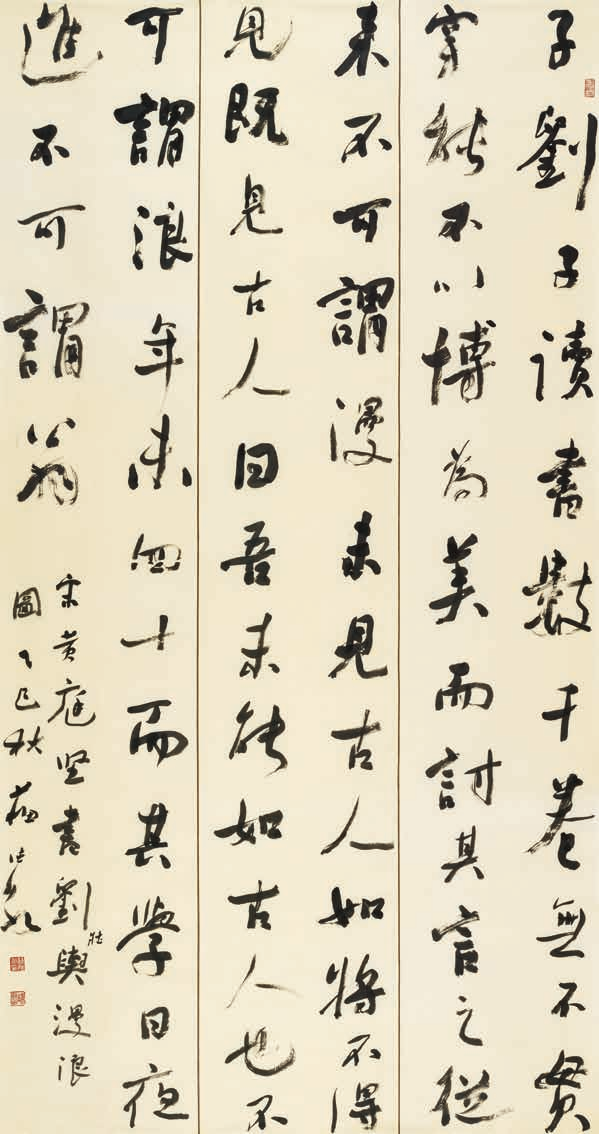 子劉子读書數千卷無不貫
穿能不以博為美而討其言之從
来不可謂漫未見古人如将不得
見既見古人曰吾未能如古人也不
可謂浪年未四十而其学日夜
進不可謂翁
宋黄庭坚書劉壮輿漫浪
圖乙巳秋